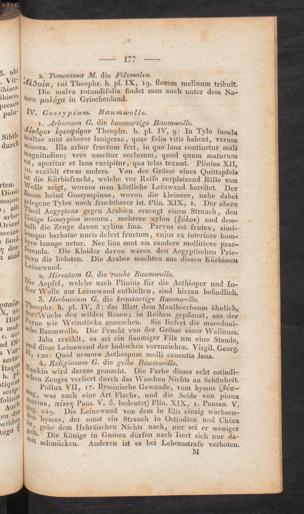 — 177 —
2. Tomentosa M. die Filzmalve.
cui Theophr. h. pl. IX, 19. florem melinum tribuit.
Die malva rotundifolia findet man auch unter dem Na-
men μολόχα in Griechenland.
IV. Gossypium. Baumwolle.
1. Arboreum G. die baumartige Baumwolle.
Δένδρον ἐριοφόρον Theophr. h. pl. IV, 9: In Tylo insula
multae sunt arbores lanigerae, quae folia vitis habent, verum
minora. Illa arbor fructum fert, in quo lana continetur mali
magnitudine; vere nascitur occlusum, quod quum maturum
est, aperitur et lana excipitur, qua telas texunt. Plinius XII,
10. erzählt etwas anders. Von der Grösse eines Quittapfels
ist die Kürbisfrucht, welche vor Reife zerplatzend Bälle von
Wolle zeigt, woraus man köstliche Leinwand bereitet. Der
Baum heisst Gossympinus, wovon die kleinere, nahe dabei
gelegene Tylos noch fruchtbarer ist. Plin. XIX, 1. Der obere
Theil Aegyptens gegen Arabien erzeugt einen Strauch, den
Einige Gossypios nennen, mehrere xylina (ξύλον) und dess-
halb die Zeuge davon xylina lina. Parvus est frutex, simil-
emque barbatae nucis defert fructum, cujus ex interiore bom-
byce lanugo netur. Nec lina sunt eis candore mollitieve prae-
ferenda. Die Kleider davon waren den Aegyptischen Prie-
stern die liebsten. Die Araber machten aus diesen Kürbissen
Leinewand.
2. Hirsutum G. die rauhe Baumwolle.
Die Aepfel, welche nach Plinius für die Aethioper und In-
der Wolle zur Leinwand enthielten, sind hierauf befindlich.
3. Herbaceum G. die krautartige Baumwolle.
Theophr. h. pl. IV, 5: das Blatt dem Maulbeerbaum ähnlich,
der Wuchs den wilden Rosen; in Reihen gepflanzt, aus der
Ferne wie Weinstöcke anzusehen. Sie liefert die macedoni-
sche Baumwolle. Die Frucht von der Grösse einer Wallnuss.
Jaba erzählt, es sei ein flaumiger Filz um eine Staude,
und diese Leinewand der Indischen vorzuziehen. Virgil. Georg.
II, 120: Quid nemora Aethiopum molli canentia lana.
4. Religiosum G. die gelbe Baumwolle.
Nankin wird daraus gemacht. Die Farbe dieses echt ostindi-
schen Zeuges verliert durch das Waschen Nichts an Schönheit.
Pollux VII, 17. Byssinische Gewande, von byssus
was auch eine Art Flachs, und die Seide von pinna
marina, Paus. V, 5. bedeutet) Plin. XIX, 1. Pausan. V.
Die Leinewand von dem in Elis einzig wachsen-
den byssus, der sonst ein Strauch in Ostindien und China
ist, gebe dem Hebräischen Nichts nach, nur sei er weniger
gelb. Die Könige in Guinea dürfen nach Isert sich nur da-
mit schmücken. Anderen ist es bei Lebensstrafe verboten.
M